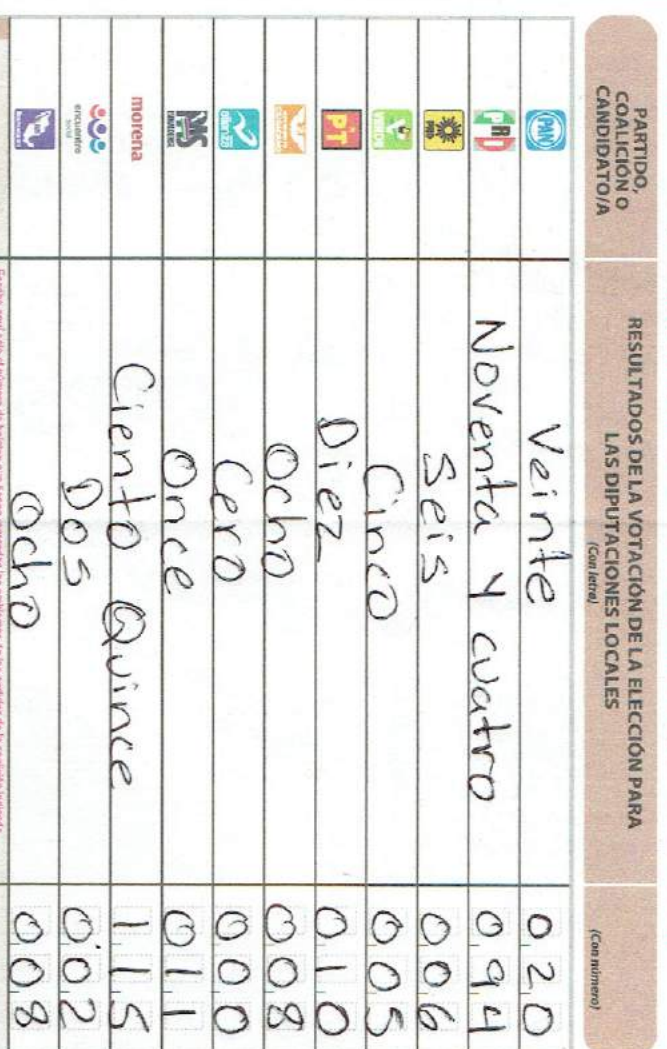 PARTIDO,
COALICIÓN O
CANDIDATO/A
RESULTADOS DE LA VOTACIÓN DE LA ELECCIÓN PARA
LAS DIPUTACIONES LOCALES
(Con letra)
(Con número)
PAN Veinte 020
PRD Noventa y cuatro 094
PRD Seis 006
VERDE Cinco 005
PT Diez 010
Ocho 008
alianza Cero 000
Once 011
morena Ciento Quince 115
encuentro social Dos 002
Ocho 008